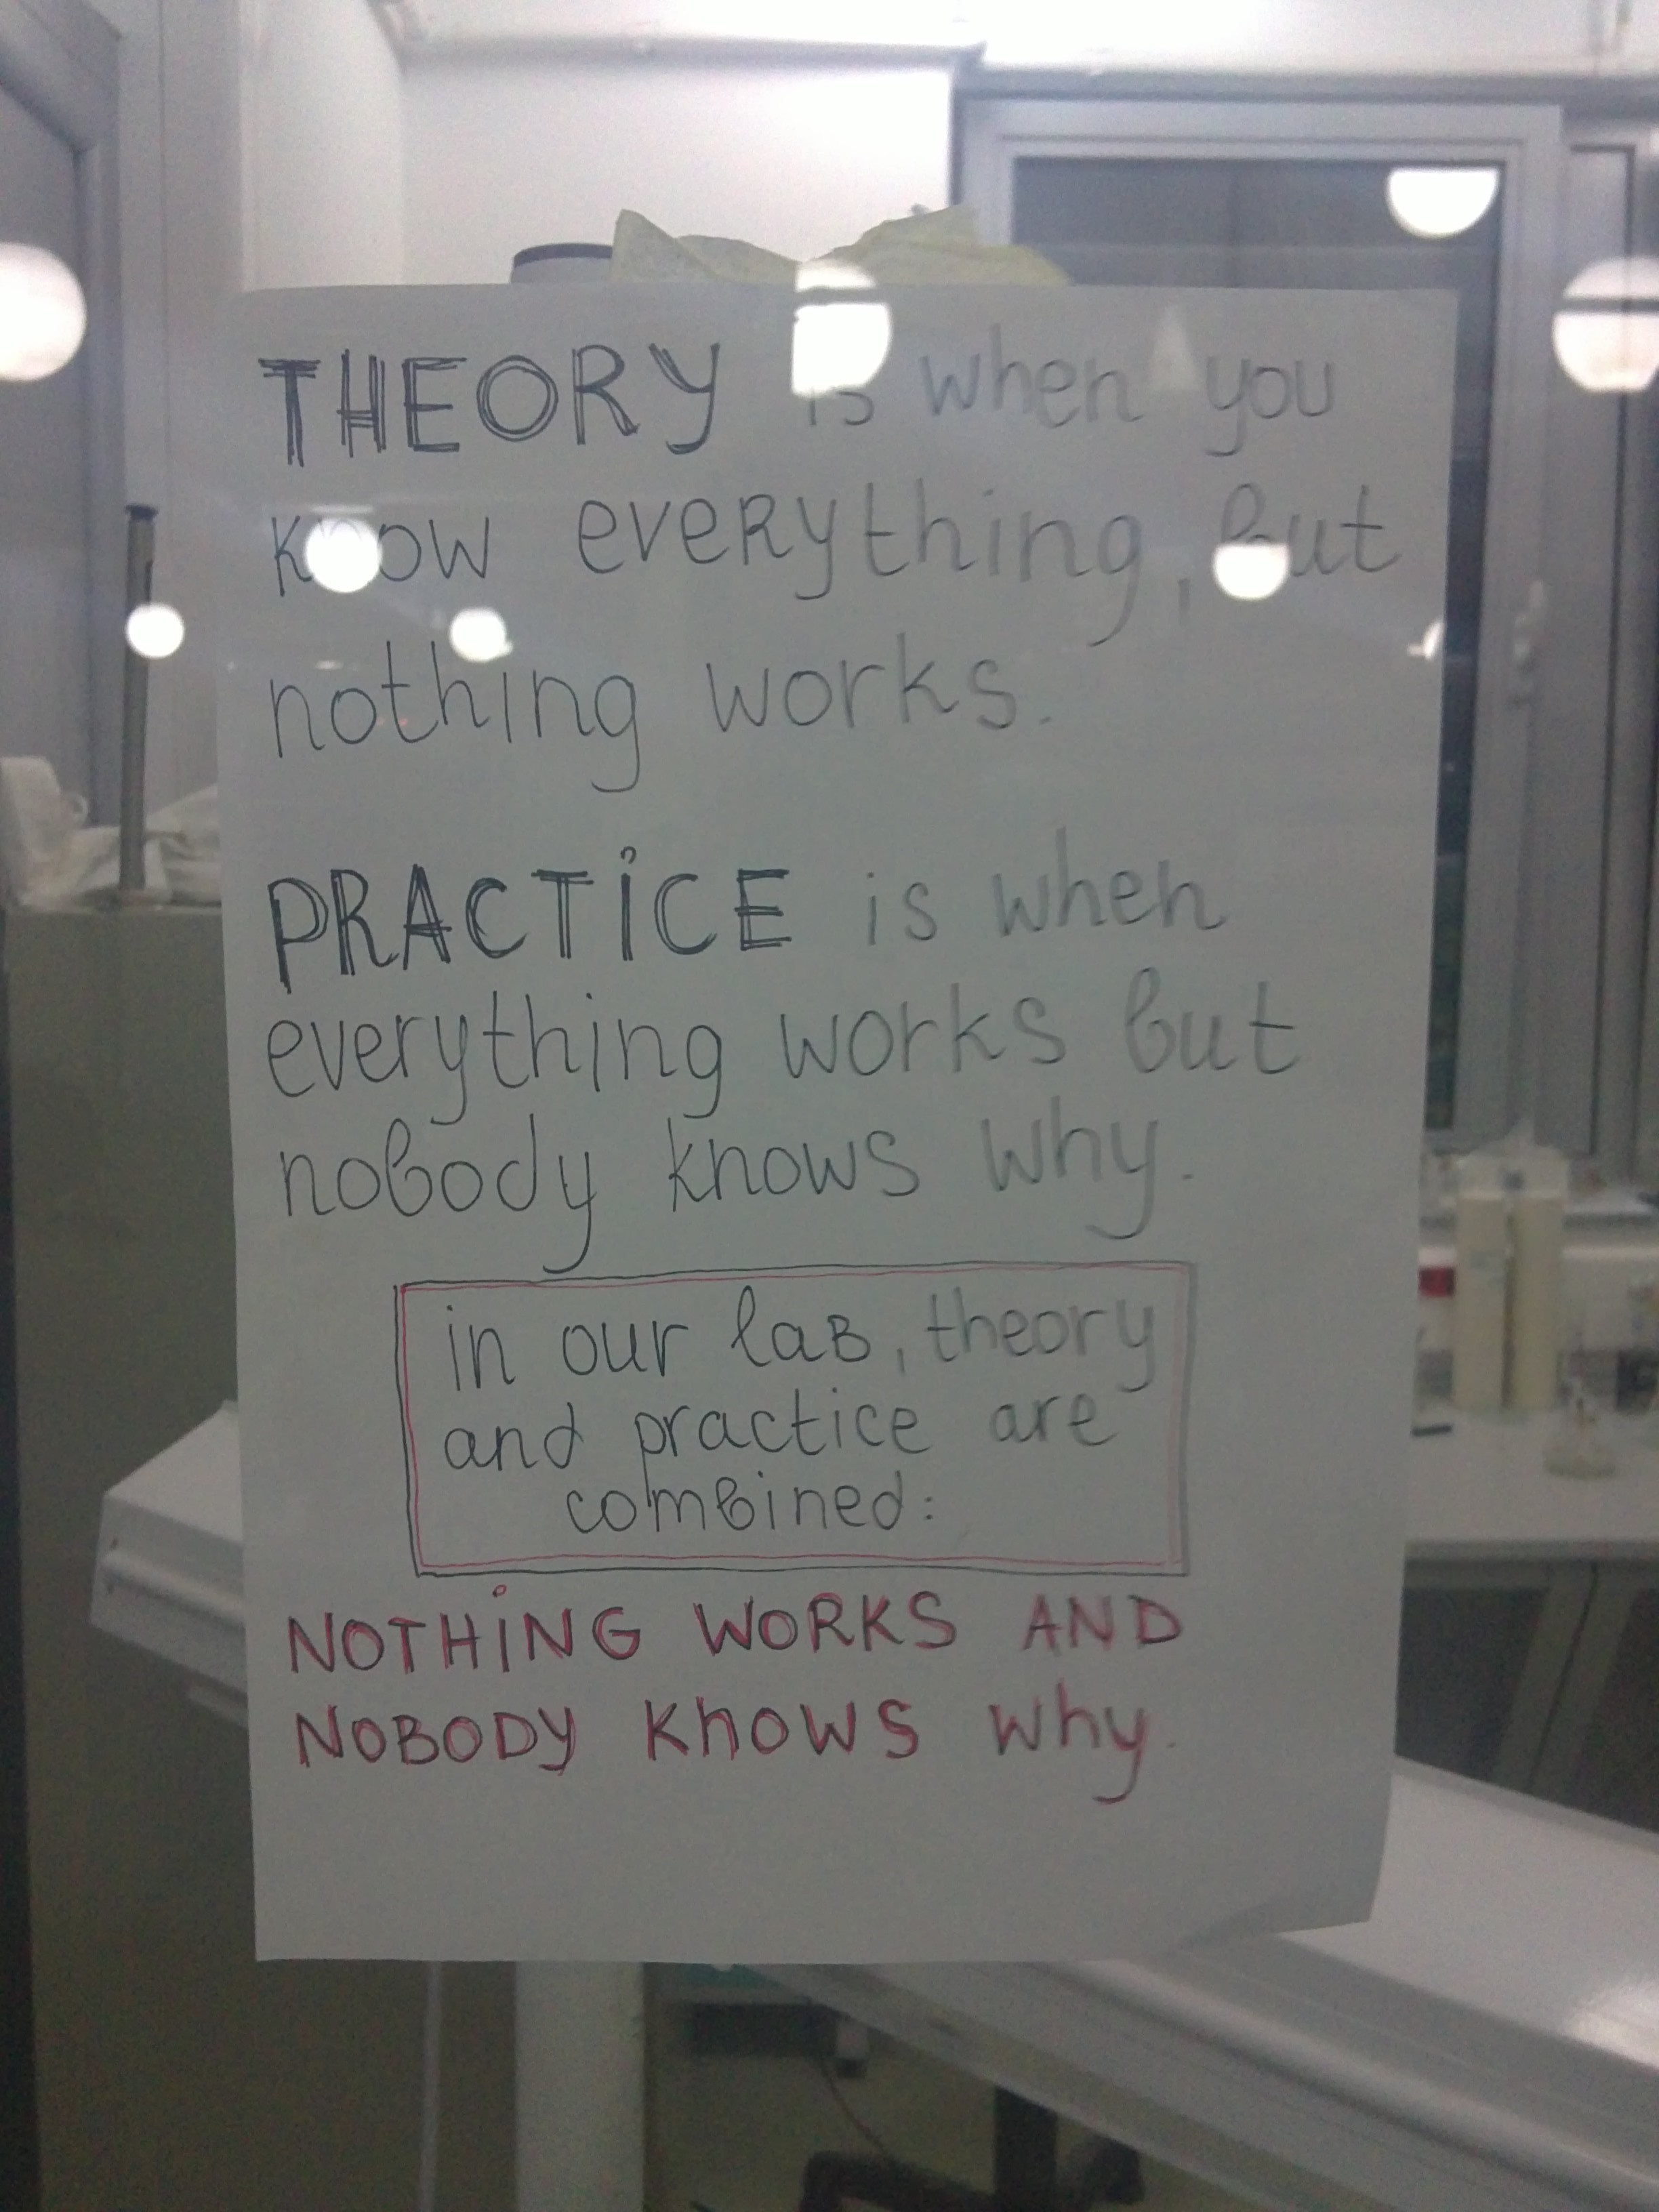 THEORY is when you
know everything, but
nothing works.
PRACTICE is when
everything works but
nobody knows why.
in our lab, theory
and practice are
combined:
NOTHING WORKS AND
NOBODY knows why.